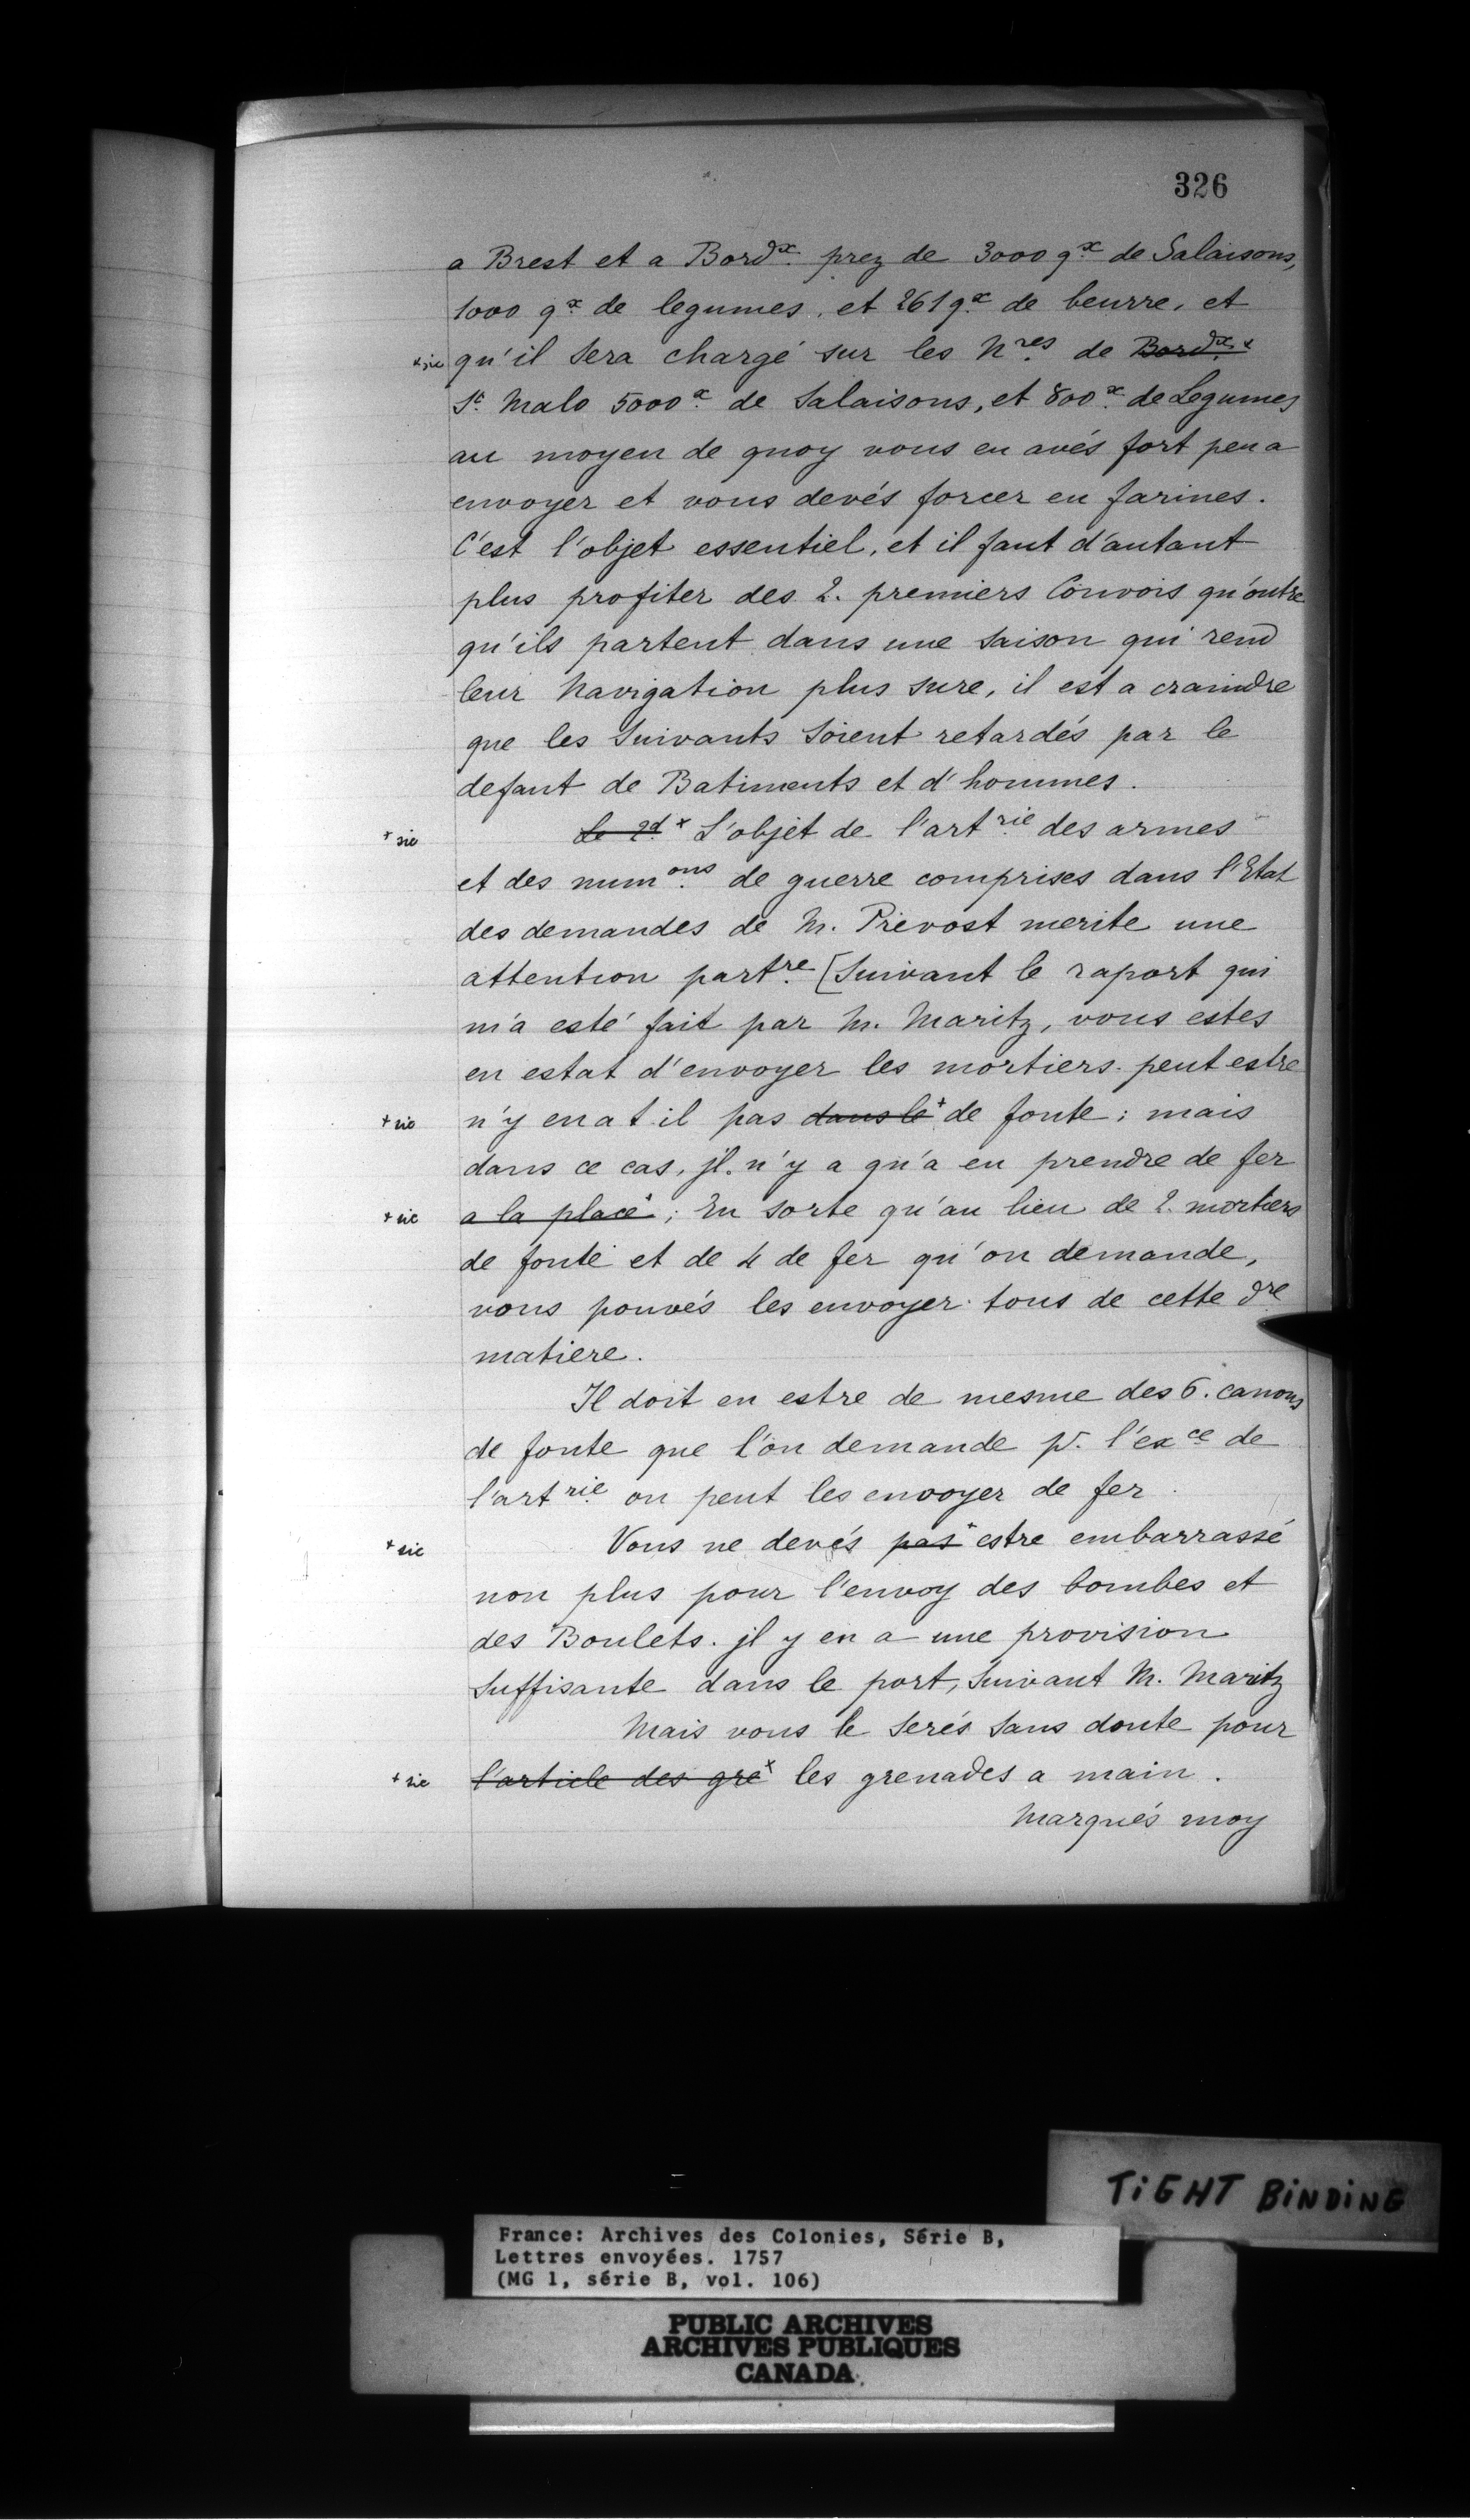 326
a Brest et a Bord.x prez de 3000 q.x de Salaisons,
1000 q.x de legumes, et 261 q.x de beurre, et
+ sic qu'il sera chargé sur les N.res de Bord.x +
S.t Malo 5000.x de Salaisons, et 800.x de Legumes
au moyen de quoy vous en avés fort peu a
envoyer et vous devés forcer en farines.
C'est l'objet essentiel, et il faut d'autant
plus profiter des 2. premiers Convois qu'outre
qu'ils partent dans une saison qui rend
leur Navigation plus sure, il est a craindre
que les suivants soient retardés par le
defaut de Batiments et d'hommes.
+ sic Le 2d + L'objet de l'art.rie des armes
et des mum.ons de guerre comprises dans l'Etat
des demandes de M. Prevost merite une
attention part.re (Suivant le raport qui
m'a esté fait par M. Maritz, vous estes
en estat d'envoyer les mortiers. peut estre
+ sic n'y en a t il pas dans le + de fonte; mais
dans ce cas, jl. n'y a qu'a en prendre de fer
+ sic a la place +; En sorte qu'au lieu de 2. mortiers
de fonte et de 4 de fer qu'on demande,
vous pouvés les envoyer tous de cette d.re
matiere.
Il doit en estre de mesme des 6. canons
de fonte que l'on demande p.r l'ex.ce de
l'art.rie on peut les envoyer de fer.
+ sic Vous ne devés pas + estre embarrassé
non plus pour l'envoy des bombes et
des Boulets. jl y en a une provision
suffisante dans le port, suivant M. Maritz
Mais vous le serés sans doute pour
+ sic l'article des gre + les grenades a main.
Marqués moy
TiGHT BiNDiNG
France: Archives des Colonies, Série B,
Lettres envoyées. 1757
(MG 1, série B, vol. 106)
PUBLIC ARCHIVES
ARCHIVES PUBLIQUES
CANADA